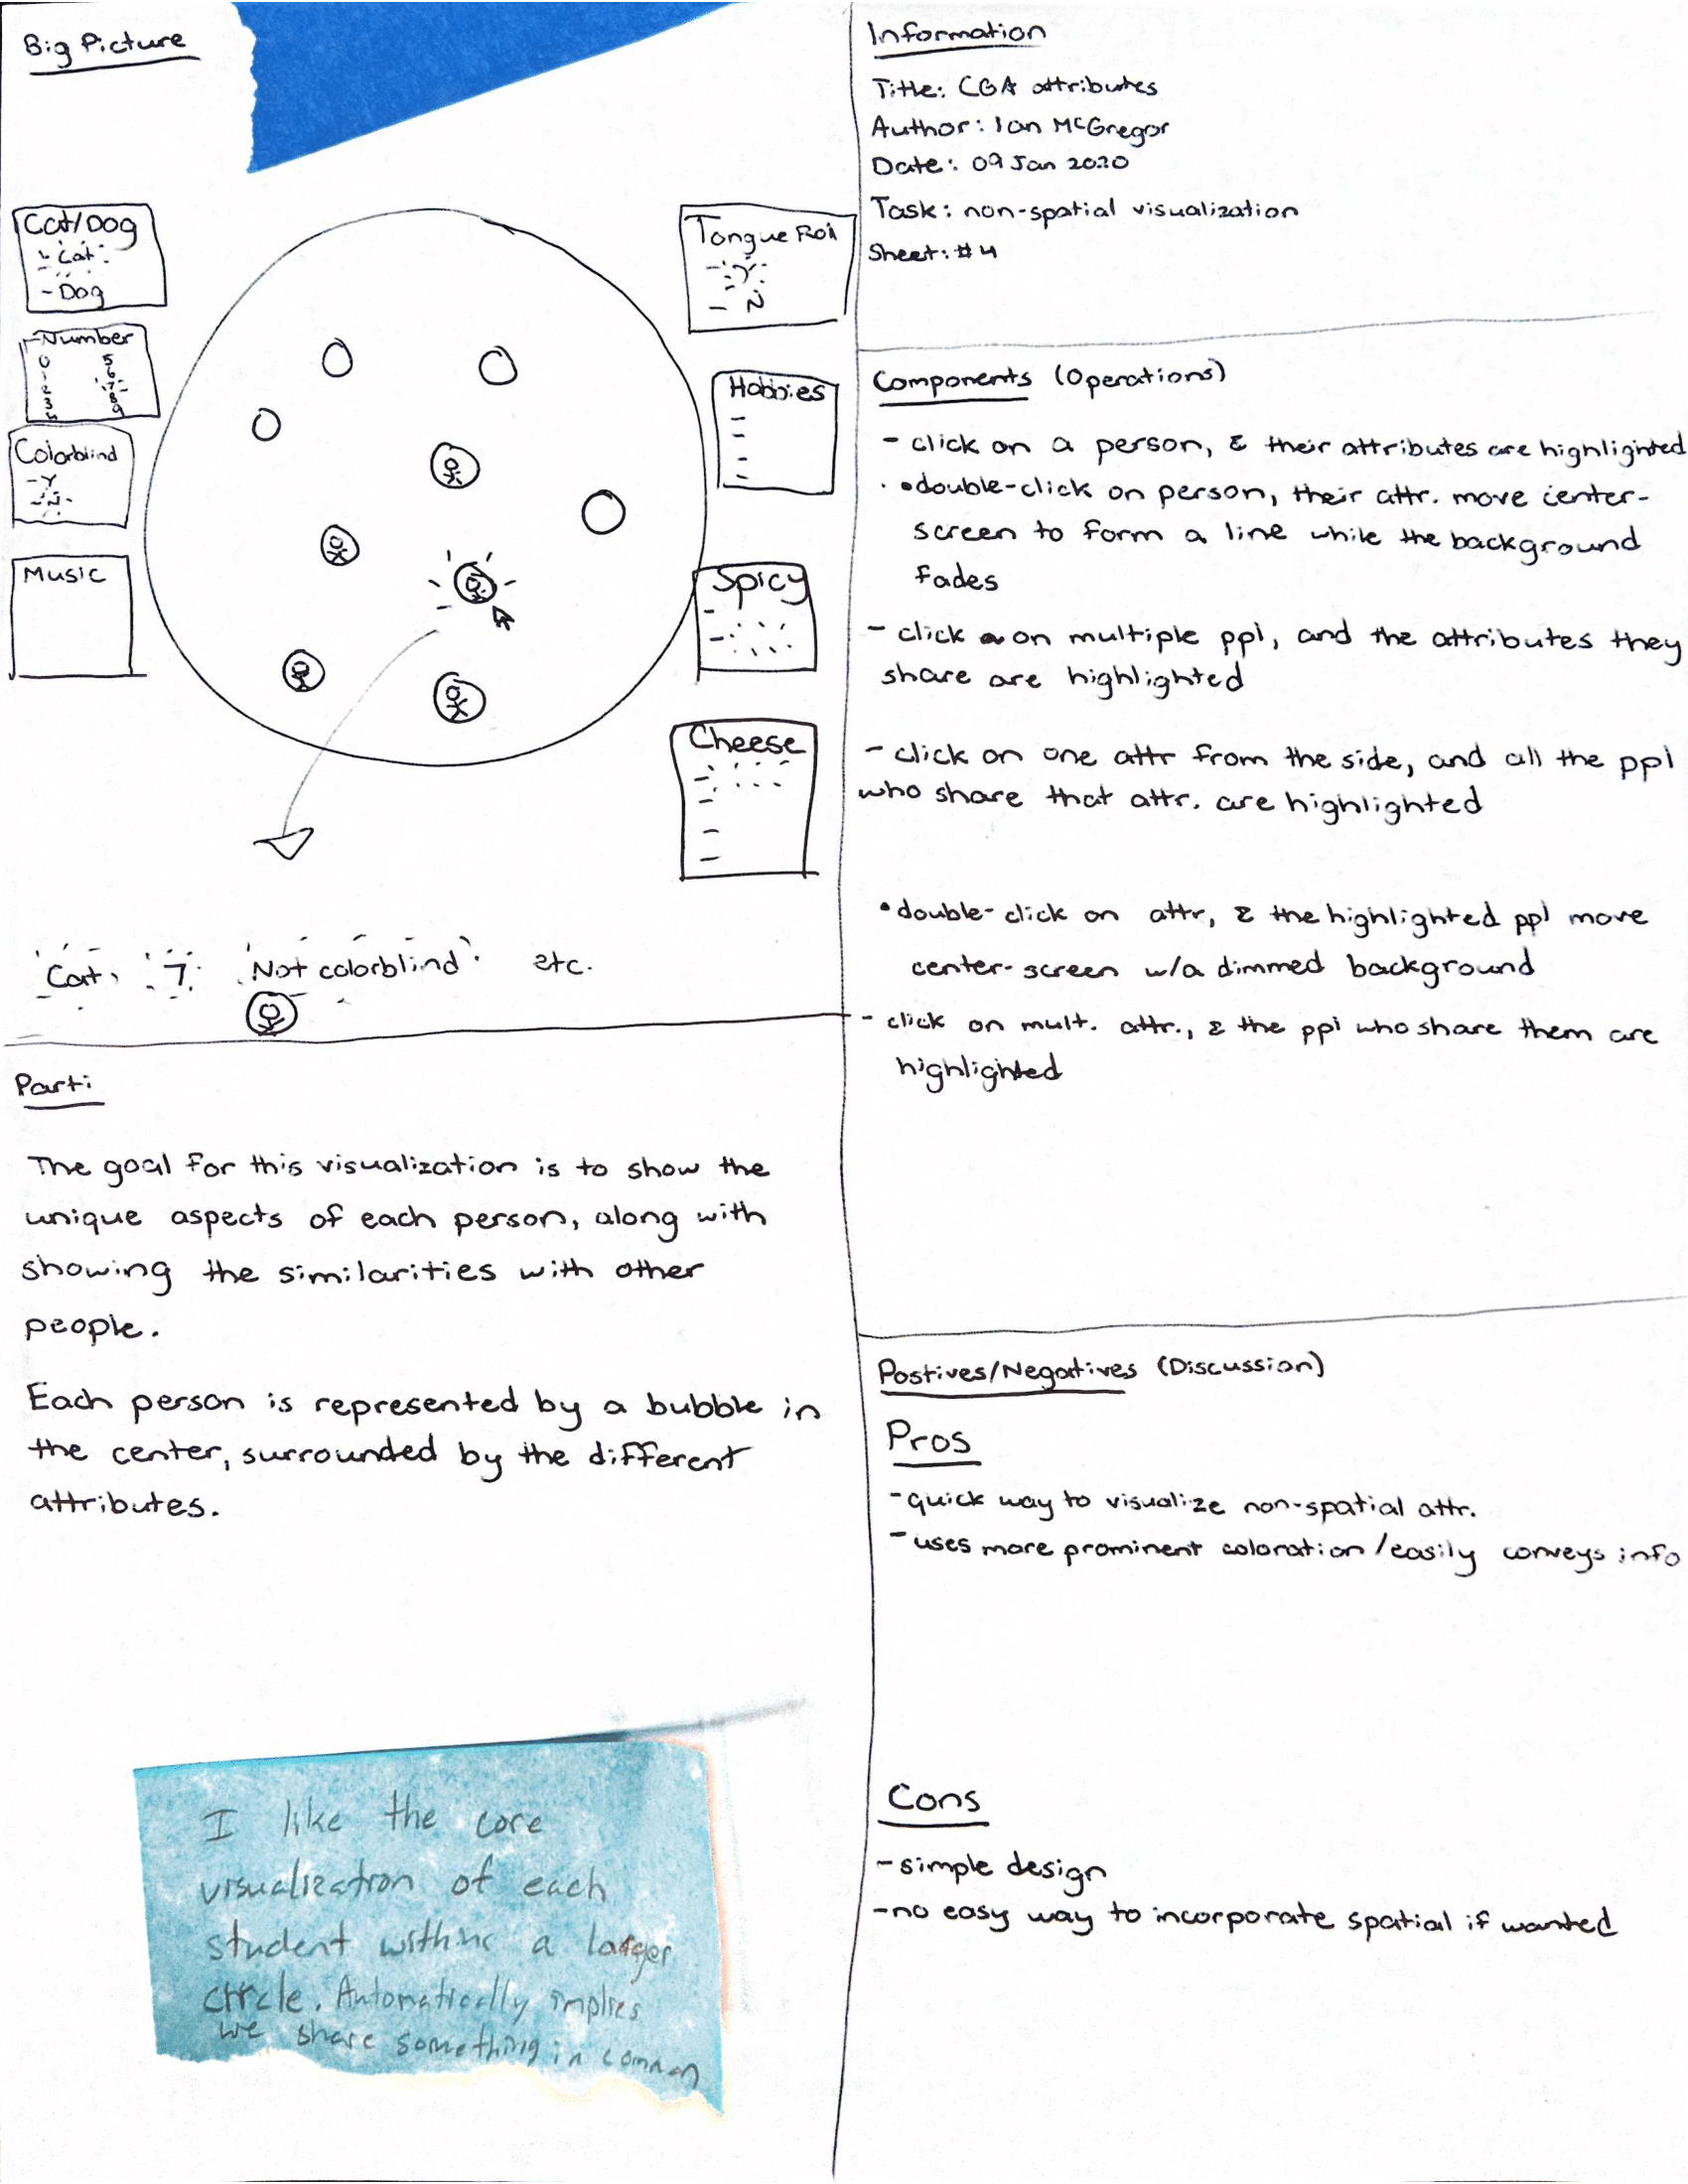 Big Picture
Cat/Dog
- Cat
- Dog
Number
0 5
1 6
2 7
3 8
9
Colorblind
- Y
- N
Music
Tongue Roll
- Y
- N
Hobbies
-
-
-
-
Spicy
-
-
Cheese
-
-
-
-
Cat, 7 Not colorblind etc.
Parti
The goal for this visualization is to show the
unique aspects of each person, along with
showing the similarities with other
people.
Each person is represented by a bubble in
the center, surrounded by the different
attributes.
I like the core
visualization of each
student within a larger
circle. Automatically implies
we share something in common
Information
Title: CGA attributes
Author: Ian McGregor
Date: 09 Jan 2020
Task: non-spatial visualization
Sheet: #4
Components (Operations)
- click on a person, & their attributes are highlighted
• double-click on person, their attr. move center-
screen to form a line while the background
fades
- click on multiple ppl, and the attributes they
share are highlighted
- click on one attr from the side, and all the ppl
who share that attr. are highlighted
• double-click on attr, & the highlighted ppl move
center-screen w/a dimmed background
- click on mult. attr., & the ppl who share them are
highlighted
Postives/Negatives (Discussion)
Pros
- quick way to visualize non-spatial attr.
- uses more prominent coloration/easily conveys info
Cons
- simple design
- no easy way to incorporate spatial if wanted